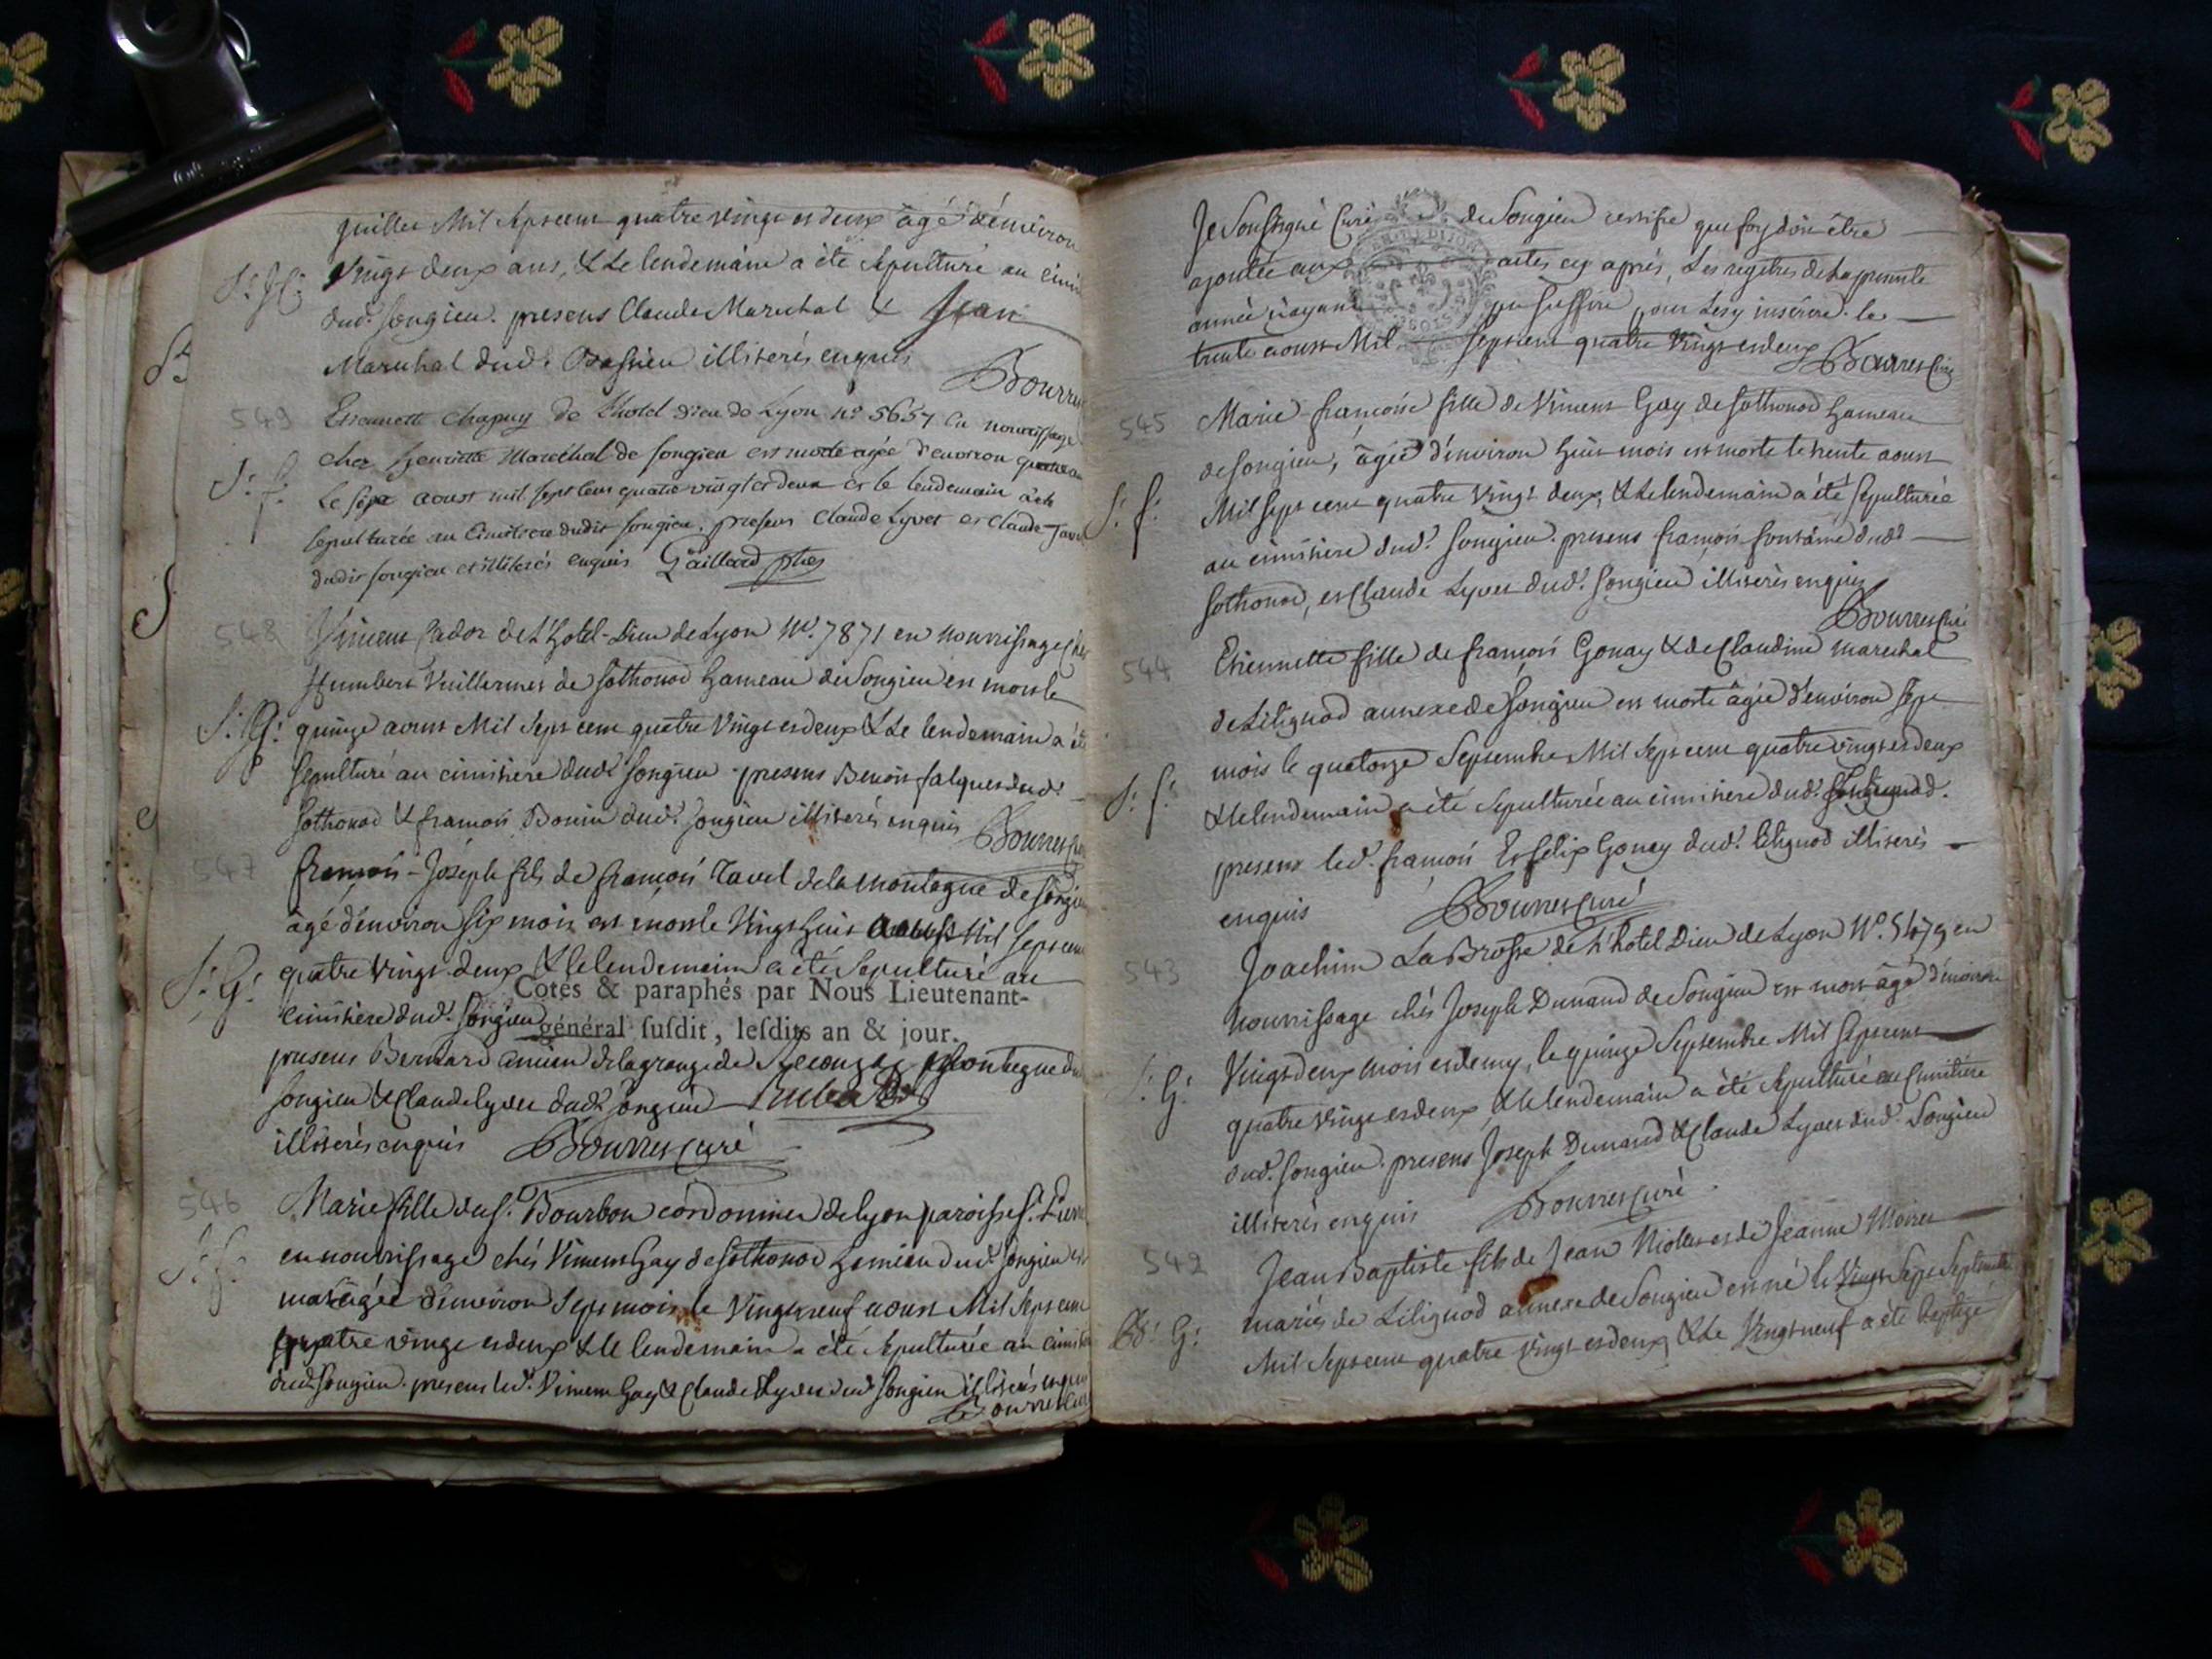 juillet Mil Septcent quatre vingt et deux âgé d'environ
S: H: Vingt deux ans, & Le lendemain a été sepulturé au cimi
dud.t Songieu. presens Claude Marechal & Jean
Marechal dud.t Bassieu illiterés enquis
Bourret
549 Etiennette Chapuy de L'hotel dieu de Lyon n.o 5657 En nourrissage
chez henriette Maréchal de Songieu est morte agée d'environ quatre an
S: f: Le sept aoust mil sept Cent quatre vingt et deux et le lendemain à été
sepulturée au Cimitiere dudit songieu. presens Claude Lyvet et Claude
dudit songieu et illiterés enquis Gaillard ptre
548 Vincent Cador de L'hotel-Dieu de Lyon N.o 7871 en nourrissage chés
Humbert Vuillermet de Sothonod hameau de Songieu est mort le
S: G: quinze aoust Mil Sept cent quatre Vingt et deux & Le lendemain a été
sepulturé au cimitiere dud.t Songieu presens Benoit falquet dud.t
Sothonod & françois Bonin dud.t Songieu illiterés enquis Bourret
547 françois-Joseph fils de françois Tavel de la montagne de Songieu
âgé d'environ six mois est mort le Vingt huit aoust Mil Septcent
S: G: quatre Vingt deux & le lendemain a été Sepulturé au
Cotés & paraphés par Nous Lieutenant-
cimitiere dud.t Songieu
général ſuſdit, leſdits an & jour.
presens Bernard ancien de la grange de montagne du
Songieu & Claude lyvet dud.t Songieu
illiterés enquis Bourret Curé
546 Marie fille du S.r Bourbon cordonnier de lyon paroisse S.t
S: f: en nourrissage chés Vincent Gay de Sothonod hameau dud.t Songieu est
morte âgée d'environ Sept mois le Vingt neuf aoust Mil Sept cent
quatre vingt et deux & le lendemain a été Sepulturée au cimitiere
dud.t Songieu. presens led.t Vincent Gay & Claude Lyvet dud.t Songieu illiterés enquis
Bourret Curé
Je Soussigné Curé de Songieu certifie que foy doit être
ajoutée aux actes cy après, Les registres de la presente
année n'ayant pu suffire pour Les y insérer. le
trente aoust Mil Septcent quatre Vingt et deux Bourret Curé
545 Marie françoise fille de Vincent Gay de Sothonod hameau
de Songieu, âgée d'environ huit mois est morte le trente aoust
S: f: Mil sept cent quatre vingt deux, & Le lendemain a été sepulturée
au cimitiere dud.t Songieu. presens françois fontaine dud.t
Sothonod, et Claude Lyvet dud.t Songieu illiterés enquis
Bourret Curé
544 Etiennette fille de françois Gonay & de Claudine marechal
de Lilignod annexe de Songieu est morte âgée d'environ sept
mois le quatorze Septembre Mil Sept cent quatre vingt et deux
S: f: & le lendemain a été Sepulturée au cimitiere dud.t
presens led.t françois Et felix Gonay dud.t Lilignod illiterés
enquis Bourret Curé
543 Joachim La Brosse de L'hotel Dieu de Lyon N.o 5479 en
nourrissage chés Joseph Dunand de Songieu est mort âgé d'environ
S: G: Vingt deux mois et demy, le quinze Septembre Mil Septcent
quatre vingt et deux, & le lendemain a été Sepulturé au Cimitiere
dud.t Songieu. presens Joseph Dunand & Claude Lyvet dud.t Songieu
illiterés enquis Bourret Curé
542 Jean Baptiste fils de Jean et de Jeanne
mariés de Lilignod annexe de Songieu est né le Vingt Sept Septembre
B: G: Mil Septcent quatre vingt et deux, & Le Vingt neuf a été baptizé